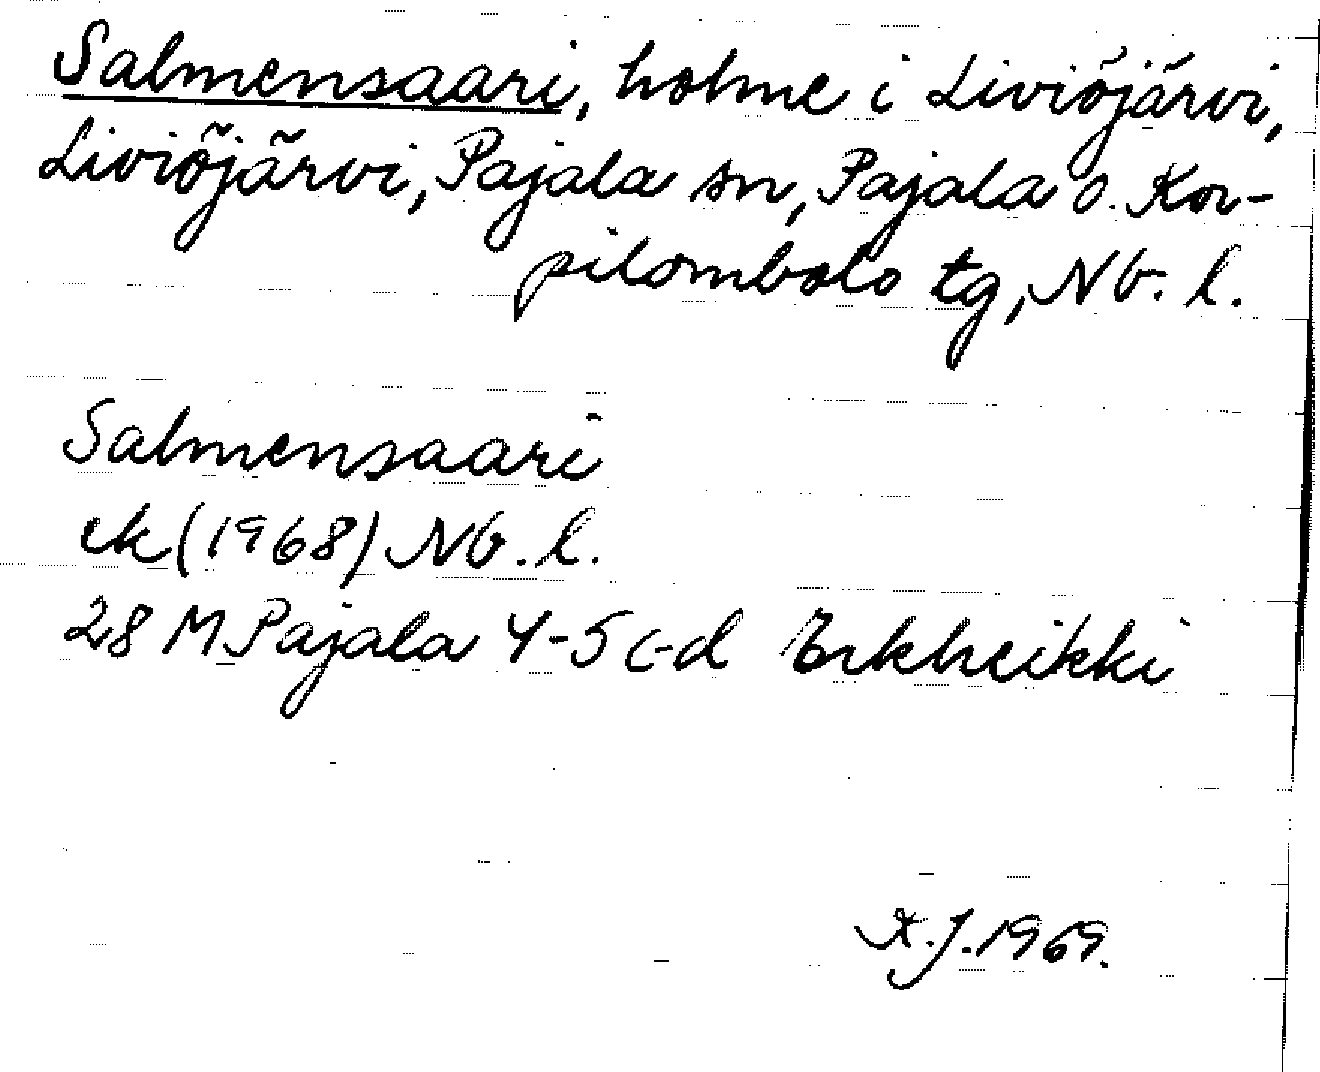 Salmensaari, holme i Liviöjärvi,
Liviöjärvi, Pajala sn, Pajala o. Kor-
pilombolo tg, Nb. l.
Salmensaari
ek (1968) Nb. l.
28 M Pajala 4-5 c-d Erkheikki
J. 1969.